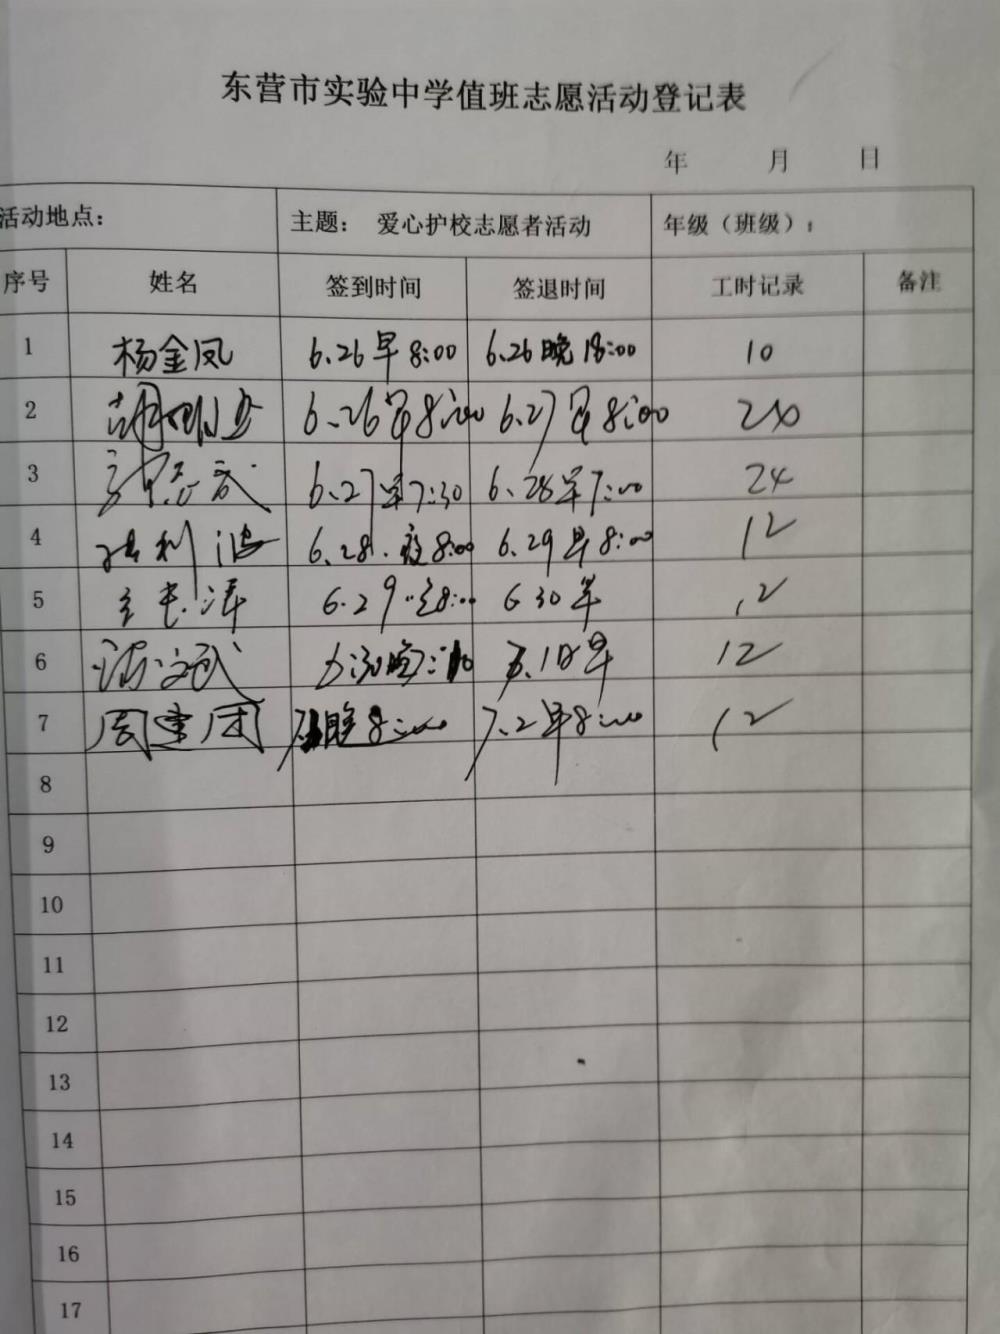 东营市实验中学值班志愿活动登记表
年 月 日
活动地点: 主题: 爱心护校志愿者活动 年级（班级）:
序号 姓名 签到时间 签退时间 工时记录 备注
1 杨金凤 6.26早8:00 6.26晚18:00 10
2 6.26早8:00 6.27早8:00 24
3 6.27早7:30 6.28早7:00 24
4 6.28.夜8:00 6.29早8:00 12
5 6.29 8:00 6 30早 12
6 7.1日早 12
7 周建团 晚8:00 7.2早8:00 12
8
9
10
11
12
13
14
15
16
17